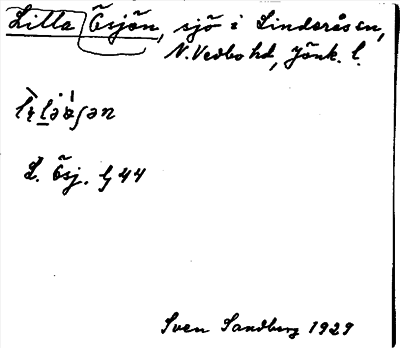 Litla Ösjön, sjö i Linderås sn,
N. Vedbo hd, Jönk. l.
L. Ösj. G 44
Sven Sandberg 1929